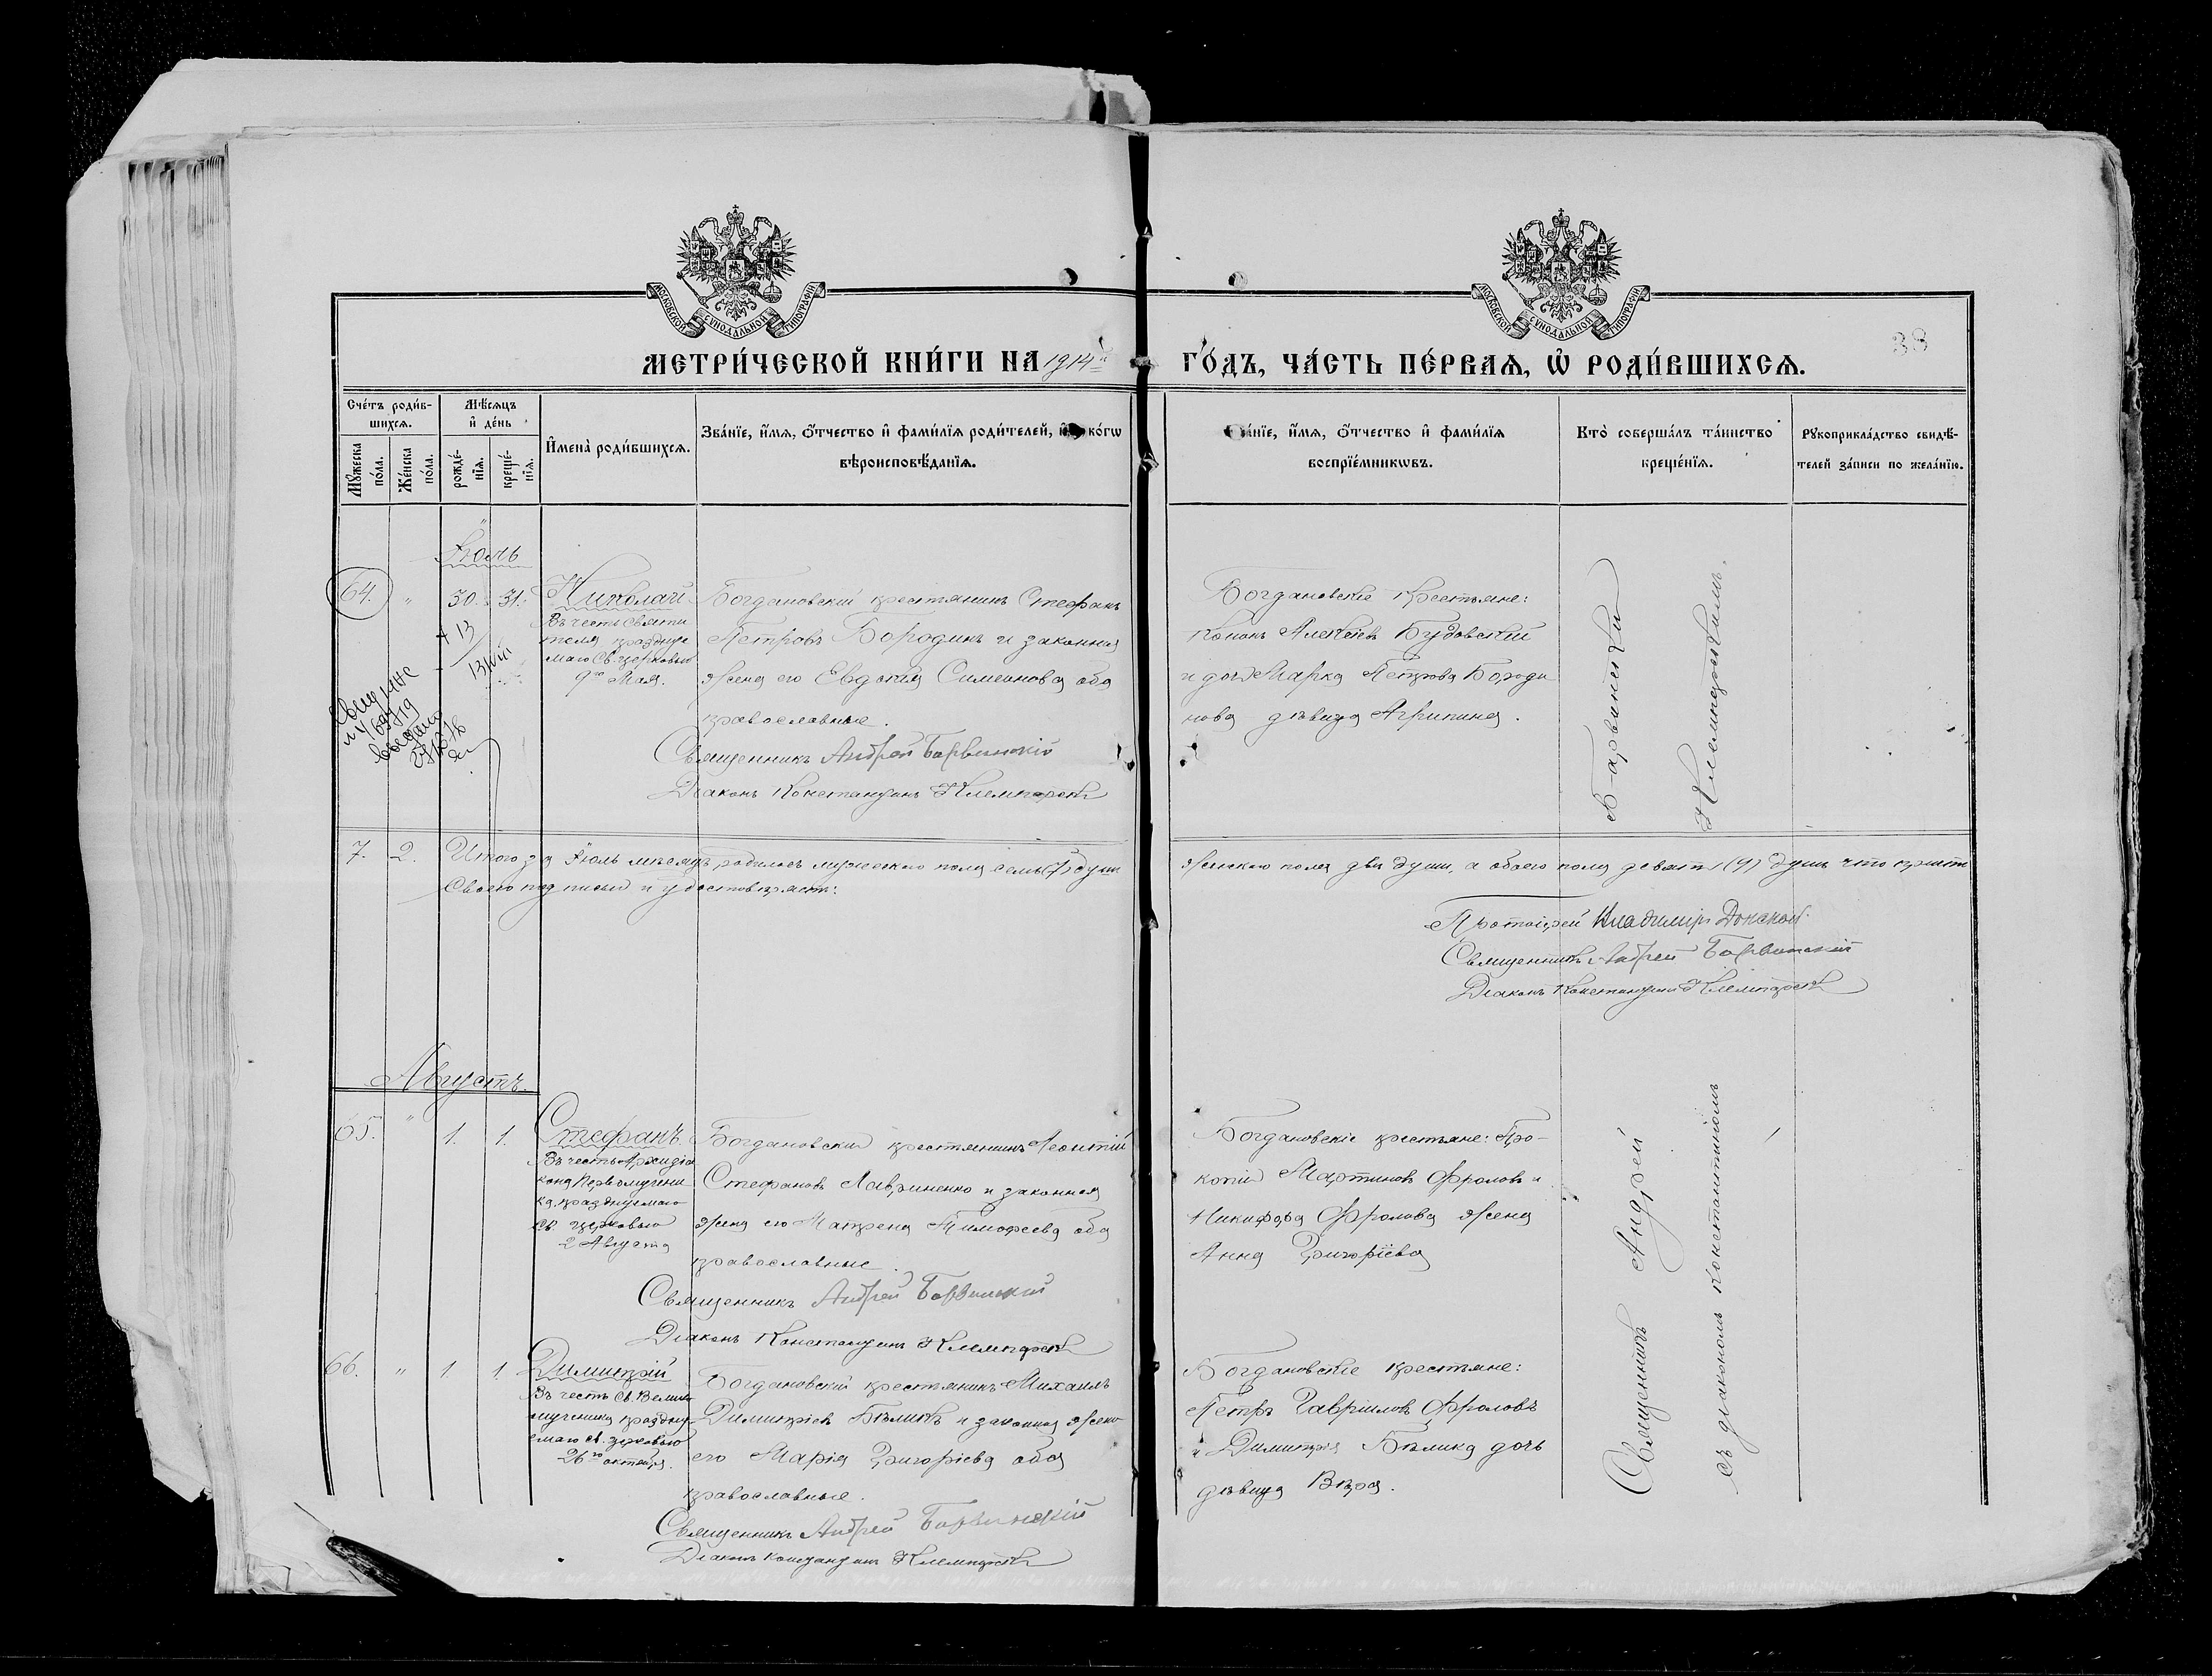 МОСКОВСКОЙ СѴНОДАЛЬНОЙ ТИПОГРАФІИ
МОСКОВСКОЙ СѴНОДАЛЬНОЙ ТИПОГРАФІИ
38
МЕТРИ́ЧЕСКОЙ КНИ́ГИ НА 1914й
ГО́ДЪ, ЧА́СТЬ ПЕ́РВАѦ, Ѡ҆ РОДИ́ВШИХСѦ.
Сче́тъ роди́в-
шихсѧ.
Мꙋ́жеска по́ла.
Же́нска по́ла.
Мѣ́сѧцъ
и҆ де́нь
рожде́-
нїѧ.
креще́-
нїѧ.
И҆мена̀ роди́вшихсѧ.
Зва́нїе, и҆́мѧ, ѻ҆́тчество и҆ фами́лїѧ роди́телей, и҆ ко́гѡ
вѣроисповѣ́данїѧ.
и҆́мѧ, ѻ҆́тчество и҆ фами́лїѧ
воспрїе́мникѡвъ.
Кто̀ соверша́лъ та́инство
креще́нїѧ.
Рꙋкоприкла́дство свидѣ́-
телей за́писи по жела́нїю.
Іюль
64. " 30. 31. Николай
Въ честь Святи
теля праздную
маго Св. церковью
9го Мая.
Богдановскій крестянинъ Стефанъ
Петровъ Бородинъ и законная
жена его Евдокія Симеонова оба
православные.
Священникъ Андрей Барвинскій
Діаконъ Константинъ
Богдановскіе крестьяне:
Конон Алексѣев Будовскій
и дочь Марка Петрова Бороди
нова дѣвица Агрипина.
Барвинскій
7. 2. Итого за Іюль мѣсяцъ родилось мужеского пола семь (7) душъ
женского пола двѣ души, а обоего пола девять (9) душъ что
Своею подписью и удостовѣряютъ:
Протоіерей Владиміръ Донской
Священникъ Андрей Барвинскій
Діаконъ Константинъ
Августъ.
65. " 1. 1. Стефанъ.
Въ честь Архидіа
кона Первомучени
ка, празднуемаго
св. церковью
2 Августа
Богдановскій крестянинъ Леонтій
Стефановъ Лавриненко и законная
жена его Матрена Тимофеева оба
православные.
Священникъ Андрей Барвинскій
Діаконъ Константинъ
Богдановскіе крестьяне: Про-
копій Мартиновъ Фроловъ и
Никифора Фролова жена
Анна Григоріева
66. " 1. 1. Димитрій
Въ честь Св. Велико
мученика праздну
емаго св. церковью
26го октября.
Богдановскій крестянинъ Михаилъ
Димитріевъ Бѣликъ и законная жена
его Марія Григоріева оба
православные.
Священникъ Андрей Барвинскій
Діаконъ Константинъ
Богдановскіе крестьяне:
Петръ Гавриловъ Фроловъ
и Димитрія Бѣлика дочь
дѣвица Вѣра.
Священникъ Андрей
съ діакономъ Константиномъ